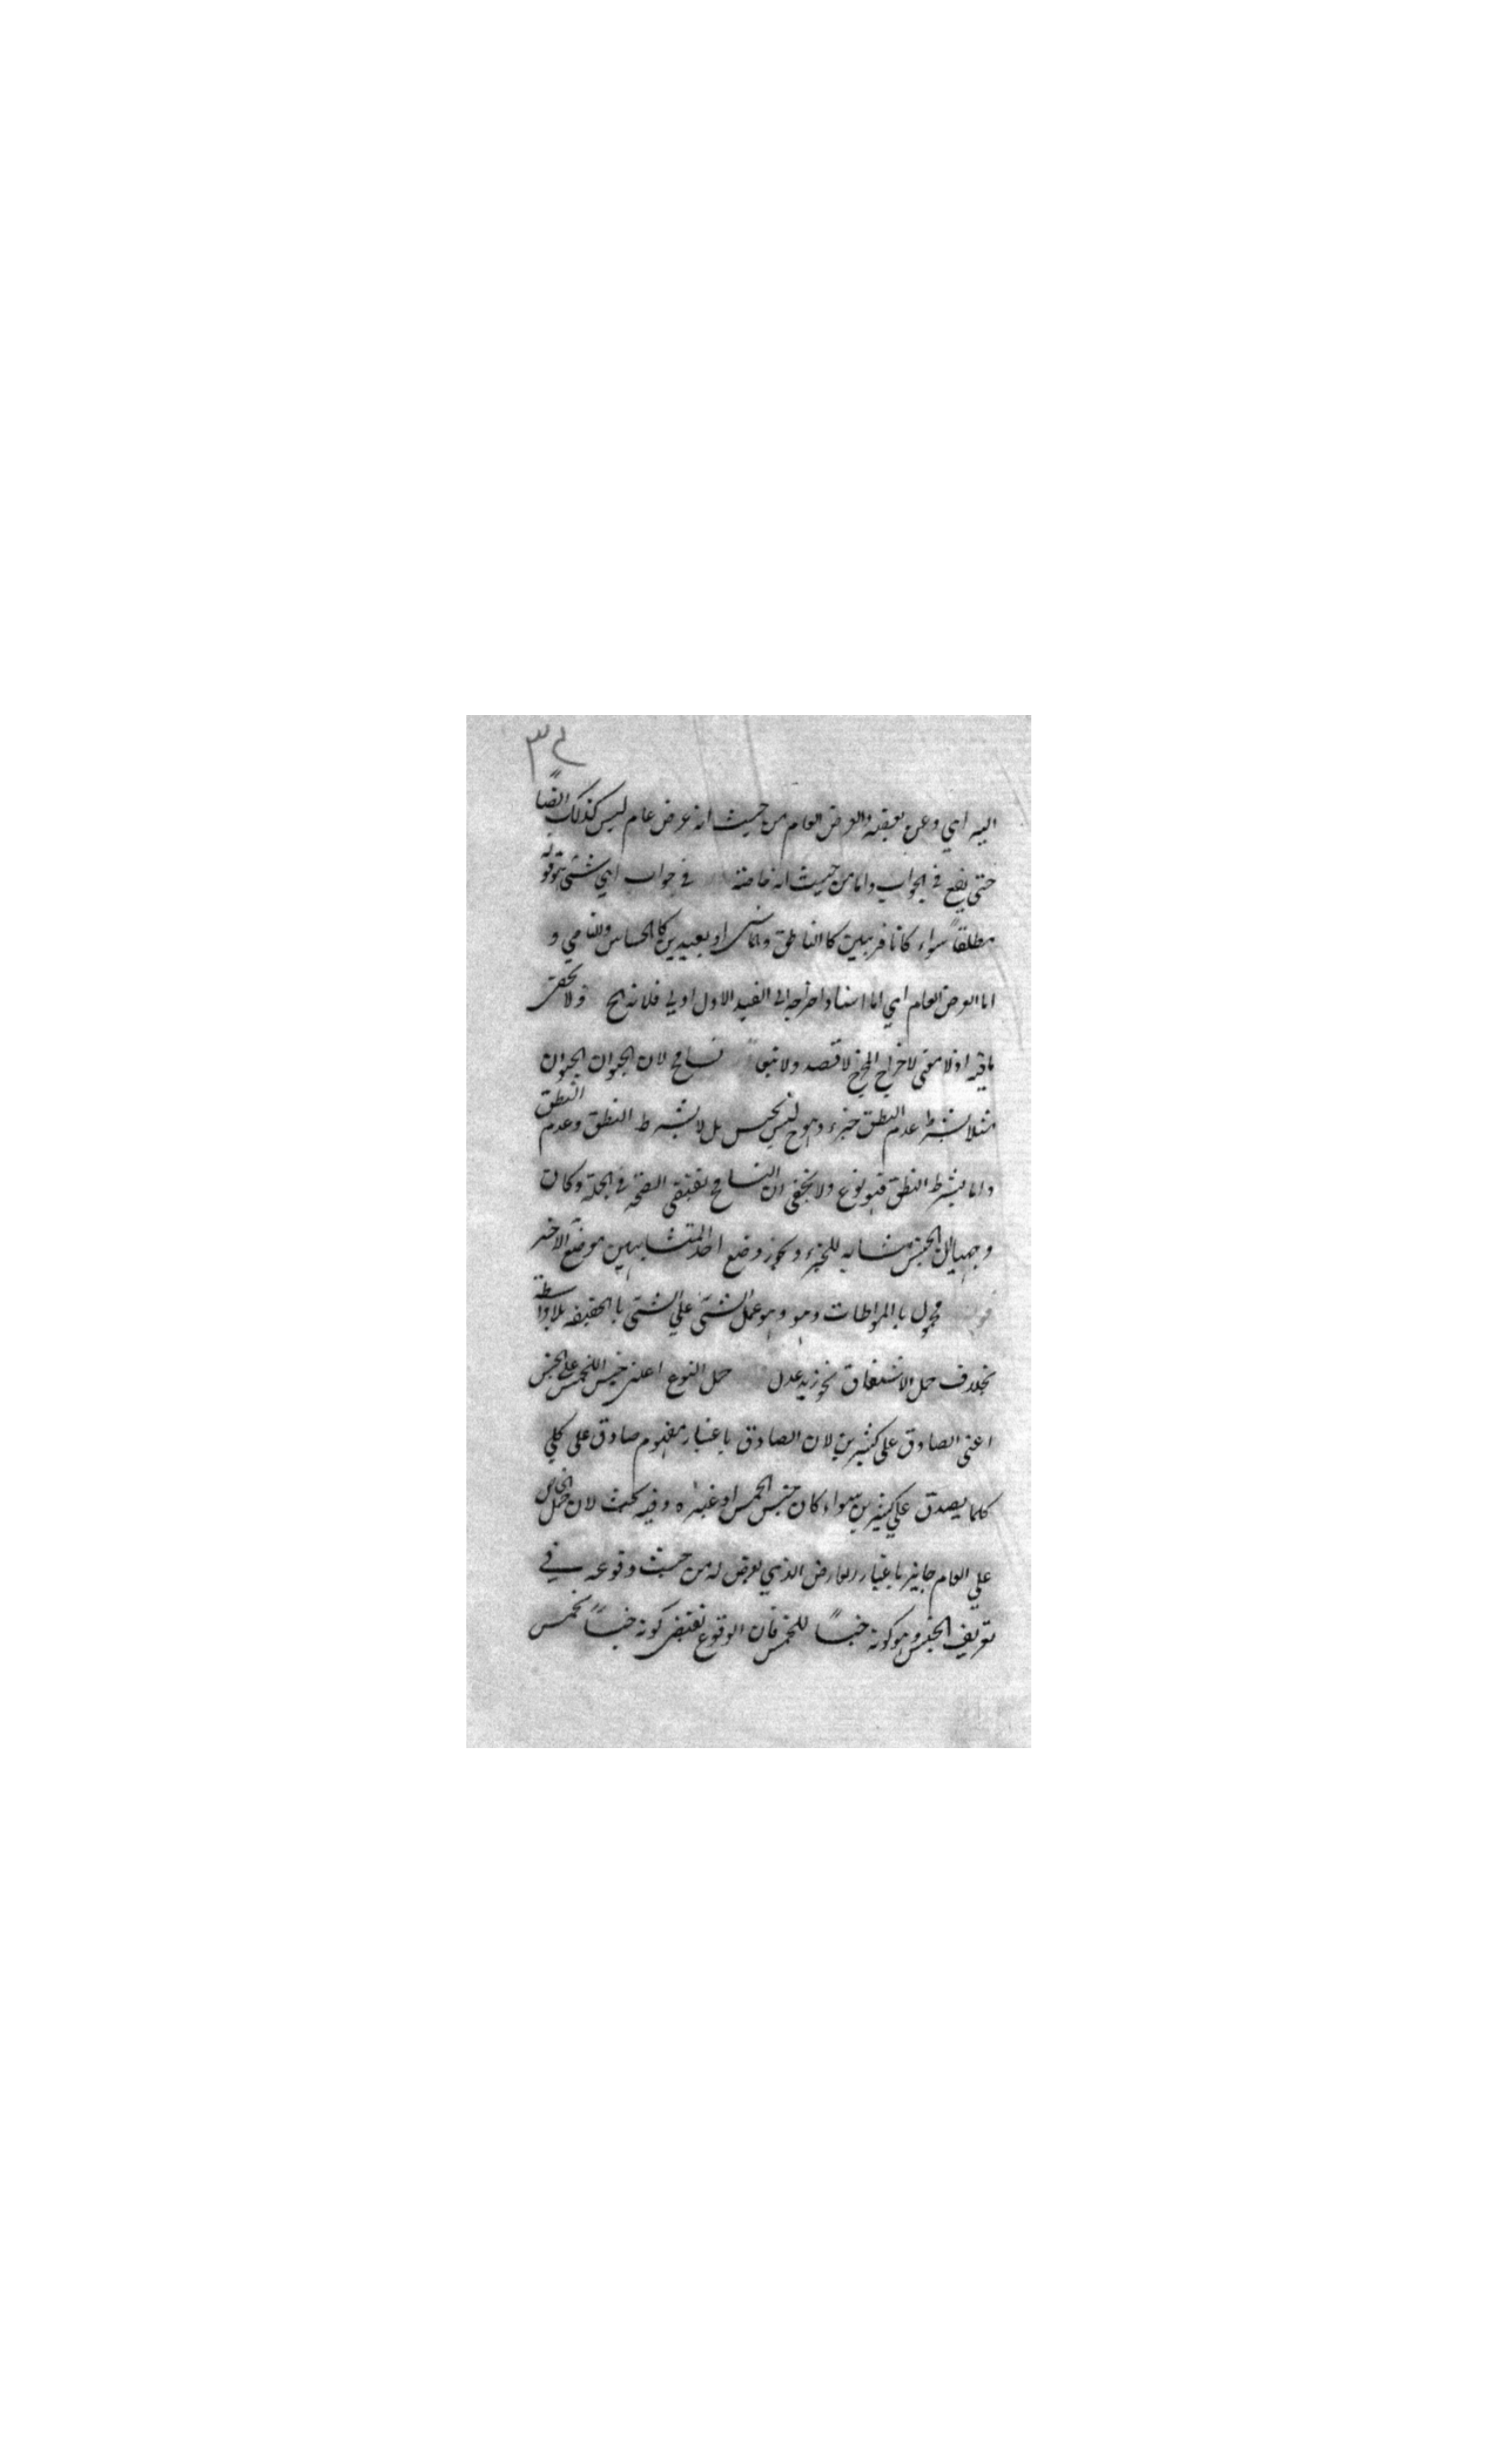 اليه اي وعن حقيقته والعرض العام من حيث انه عرض عام ليس كذلك ايضًا
حتى يقع في الجواب واما من حيث انه خاصة في جواب اي شئ هو قوله
مطلقاً سواء كانا قريبين كالناطق او بعيدين كالحساس والنامي و
اما العرض العام اي اما اسناد اخراجه الى القيد الاول اولي فلانه ولا يخفى
ما فيه اذ لا معنى لاخراج المخرج لا قصد ولا تبعاً تسامح لان الحيوان الحيوان
مثلا بشرط عدم النطق جزء وهو ح ليس بجنس بل لا بشرط النطق وعدم النطق
واما بشرط النطق فهو نوع ولا يخفى ان التسامح يقتضي الصحة في الجملة وكان
وجهها ان الجنس مشابه للجزء ويجوز وضع احد المتشابهين موضع الاخر
قوله محمول بالمواطات وهو وهو حمل الشئ على الشئ بالحقيقه بلا واسطة
بخلاف حمل الاشتقاق نحو زيد عدل حمل النوع اعني جنس الخمس على الجنس
اعني الصادق على كثيرين لان الصادق باعتبار مفهوم صادق على كلي
كلما يصدق على كثيرين سواء كان جنس الخمس او غيره وفيه بحث لان حمل الخاص
على العام جايز باعتبار العارض الذي يعرض له من حيث وقوعه في
تعريف الجنس وهو كونه جنساً للخمس فان الوقوع يقتضي كونه جنساً لخمس